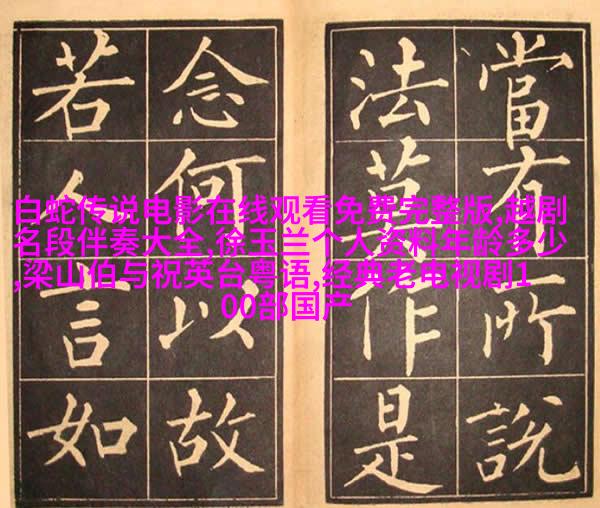 當有所說
法莫作是
念何以故
若人言如
白蛇传说电影在线观看免费完整版,越剧
名段伴奏大全,徐玉兰个人资料年龄多少
,梁山伯与祝英台粤语,经典老电视剧1
00部国产